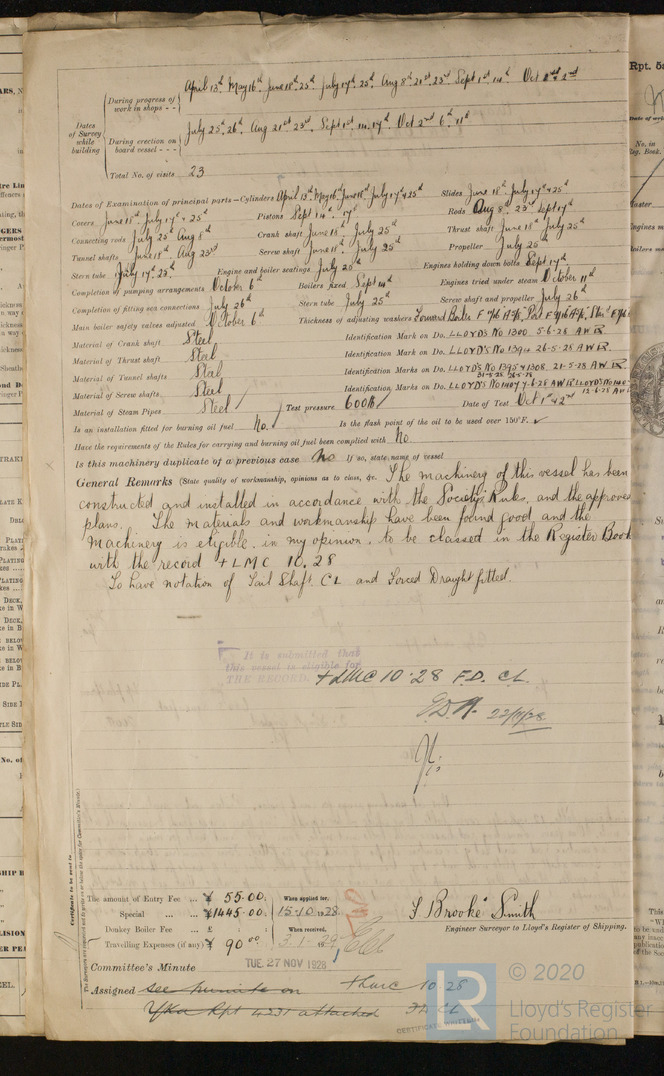 During progress of work in shops - -
April 13th May 16th June 18th. 25th July 17th. 25th Aug 8th. 21st. 23rd Sept 1st 14th Oct 2nd
Dates of Survey while building
During erection on board vessel - - -
July 25th 26th Aug 21st 23rd. Sept 1st. 14. 17th. Oct 2nd 6th 11th
Total No. of visits 23
Dates of Examination of principal parts—Cylinders April 13th. May 16th. June 18th. July 17th & 25th Slides June 18th. July 17th & 25th
Covers June 18th July 17th & 25th Pistons Sept 14th. 17th Rods Aug 8th. 23rd Sept 17th
Connecting rods July 25th Aug 8th Crank shaft June 18th July 25th Thrust shaft June 18th July 25th
Tunnel shafts June 18th Aug 23rd Screw shaft June 18th. July 25th Propeller July 25th
Stern tube July 17th. 25th Engine and boiler seatings July 25th Engines holding down bolts Sept 17th
Completion of pumping arrangements October 6th Boilers fixed Sept 14th Engines tried under steam October 11th
Completion of fitting sea connections July 26th Stern tube July 25th Screw shaft and propeller July 26th
Main boiler safety valves adjusted October 6th Thickness of adjusting washers
Material of Crank shaft Steel Identification Mark on Do. LLOYD'S No 1300 5-6-28 A W R
Material of Thrust shaft Steel Identification Mark on Do. LLOYD'S No 1394 26-5-28 A W R.
Material of Tunnel shafts Steel Identification Marks on Do. LLOYD'S No 1395 & 1308. 21-5-28 A W R.
Material of Screw shafts Steel Identification Marks on Do. LLOYD'S No 1407 7-6-28 A W R LLOYD'S No
Material of Steam Pipes Steel Test pressure 600 lb Date of Test Oct 1st & 2nd
Is an installation fitted for burning oil fuel No. Is the flash point of the oil to be used over 150°F.
Have the requirements of the Rules for carrying and burning oil fuel been complied with No
Is this machinery duplicate of a previous case No If so, state name of vessel
General Remarks (State quality of workmanship, opinions as to class, &c. The machinery of this vessel has been
constructed and installed in accordance with the Society's Rules, and the approved
plans. The materials and workmanship have been found good and the
machinery is eligible, in my opinion, to be classed in the Register Book
with the record + LMC 10.28
To have notation of Tail Shaft. CL and Forced Draught fitted.
It is submitted that
this vessel is eligible for
THE RECORD. + LMC 10.28 F.D. CL.
22/11/28
Certificate to be sent to
The Surveyors are requested not to write on or below the space for Committee's Minute.
The amount of Entry Fee ... ¥ 55.00 : When applied for,
Special ... ... ¥ 1445.00 : 15-10-1928
Donkey Boiler Fee ... £ : : When received,
Travelling Expenses (if any) ¥ 90.00 : 3.1.1929
F Brooke Smith
Engineer Surveyor to Lloyd's Register of Shipping.
Committee's Minute TUE. 27 NOV 1928
Assigned see minute on + LMC 10.28
Yka Rpt 4231 attached FD CL
CERTIFICATE WRITTEN
© 2020
LR
Lloyd's Register
Foundation
Rpt. 5a